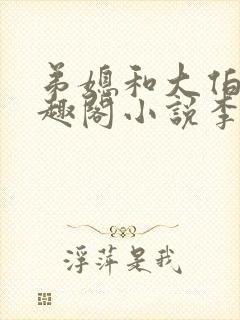 弟媳和大伯
趣阁小说李
浮萍是我